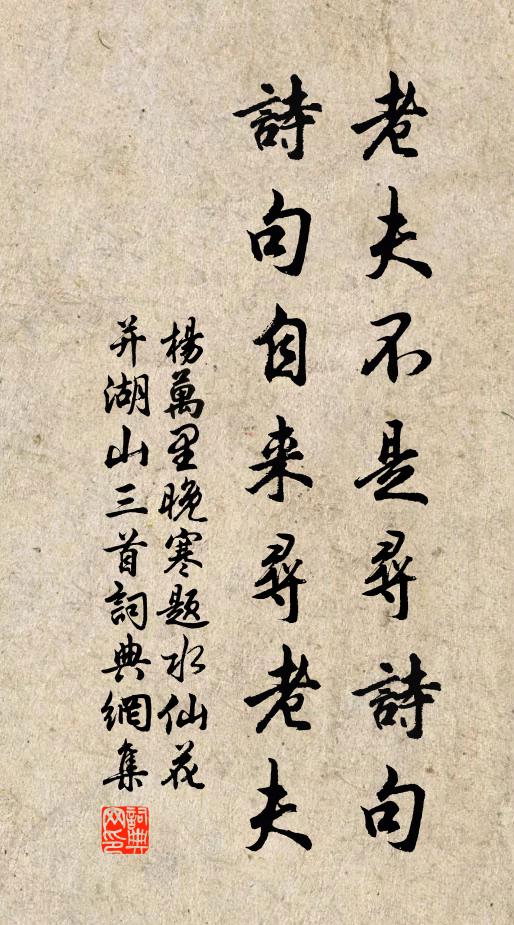 老夫不是尋詩句
詩句自来尋老夫
楊萬里晚寒題水仙花
并湖山三首詞典網集
詞典
网印